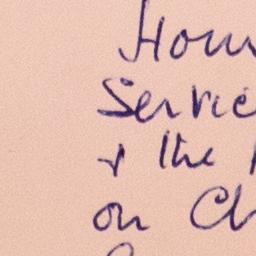 Hou
Servic
& the
on Ch